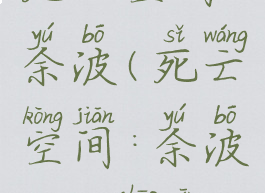 yú bō sǐ wáng
余波(死亡
kōng jiān yú bō
空间:余波